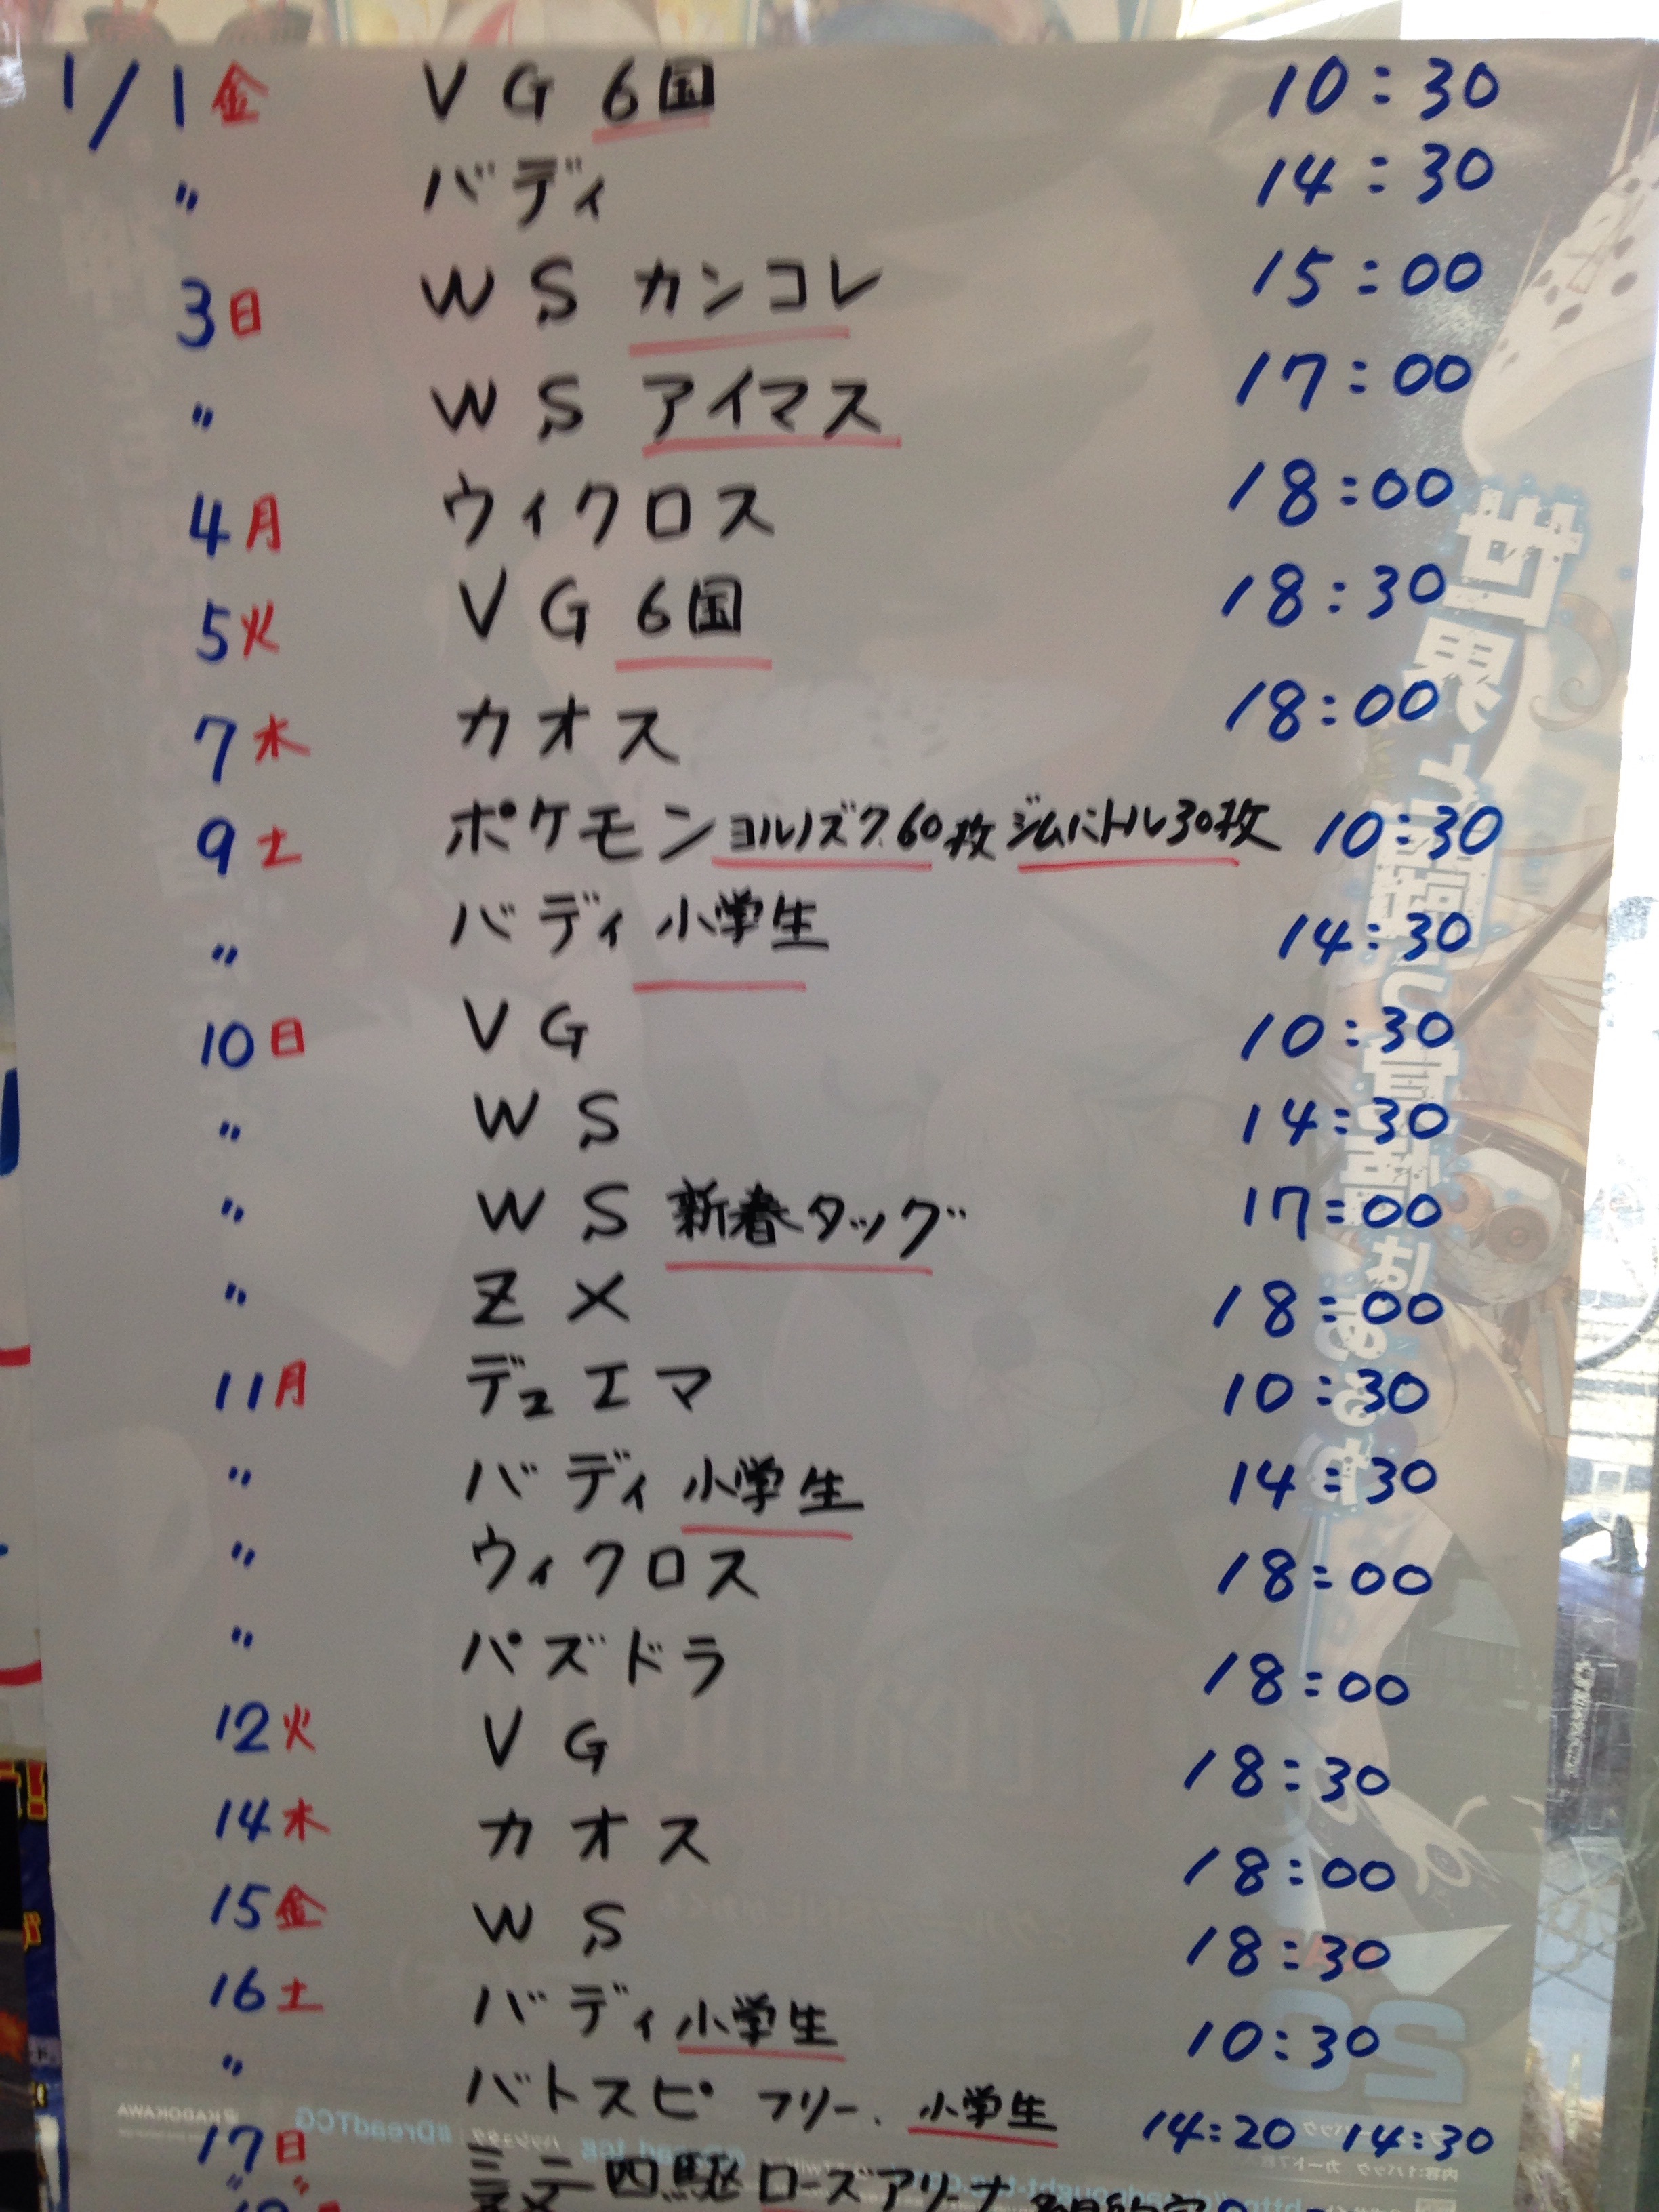 1/1 金 VG 6国 10:30
〃 バディ 14:30
3 日 WS カンコレ 15:00
〃 WS アイマス 17:00
4 月 ウィクロス 18:00
5 火 VG 6国 18:30
7 木 カオス 18:00
9 土 ポケモン ヨルノズク60枚 ジムバトル30枚 10:30
〃 バディ 小学生 14:30
10 日 VG 10:30
〃 WS 14:30
〃 WS 新春タッグ 17:00
〃 ZX 18:00
11 月 デュエマ 10:30
〃 バディ 小学生 14:30
〃 ウィクロス 18:00
〃 パズドラ 18:00
12 火 VG 18:30
14 木 カオス 18:00
15 金 WS 18:30
16 土 バディ 小学生 10:30
〃 バトスピ フリー、小学生 14:20 14:30
17 日 ミニ四駆 ローズアリーナ
KADOKAWA
#DreadTCG